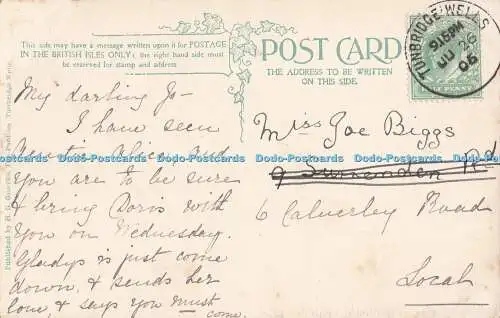 This side may have a message written upon it for POSTAGE
IN THE BRITISH ISLES ONLY; the right hand side must
be reserved for stamp and address
POST CARD
THE ADDRESS TO BE WRITTEN
ON THIS SIDE.
TUNBRIDGE WELLS
9.15PM
JU 26
06
My darling Jo-
I have seen
Auntie Alice and
You are to be sure
& bring Doris with
You on Wednesday.
Gladys is just come
down, & sends her
love, & says You must
come.
Miss Joe Biggs
9 Surrenden Rd
6 Calverley Road
Local
Published by
Tunbridge Wells
Dodo Postcards Dodo Postcards Dodo Postcards Dodo Postcards Dodo Postcards Dodo Postcards